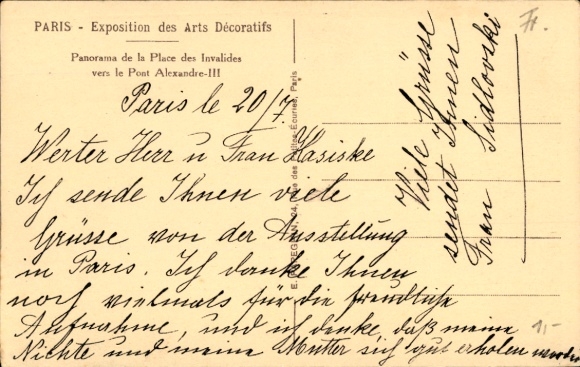 PARIS - Exposition des Arts Décoratifs
Panorama de la Place des Invalides
vers le Pont Alexandre-III
Paris le 20/7.
Werter Herr u Frau Hasiske
Ich sende Ihnen viele
Grüsse von der Ausstellung
in Paris. Ich danke Ihnen
noch vielmals für die freundliche
Aufnahme, und ich denke, daß meine
Nichte und meine Mutter sich gut erholen werden
Viele Grüsse
sendet Ihnen
Frau Sidlovski
Fr.
1,-
Écuries, Paris